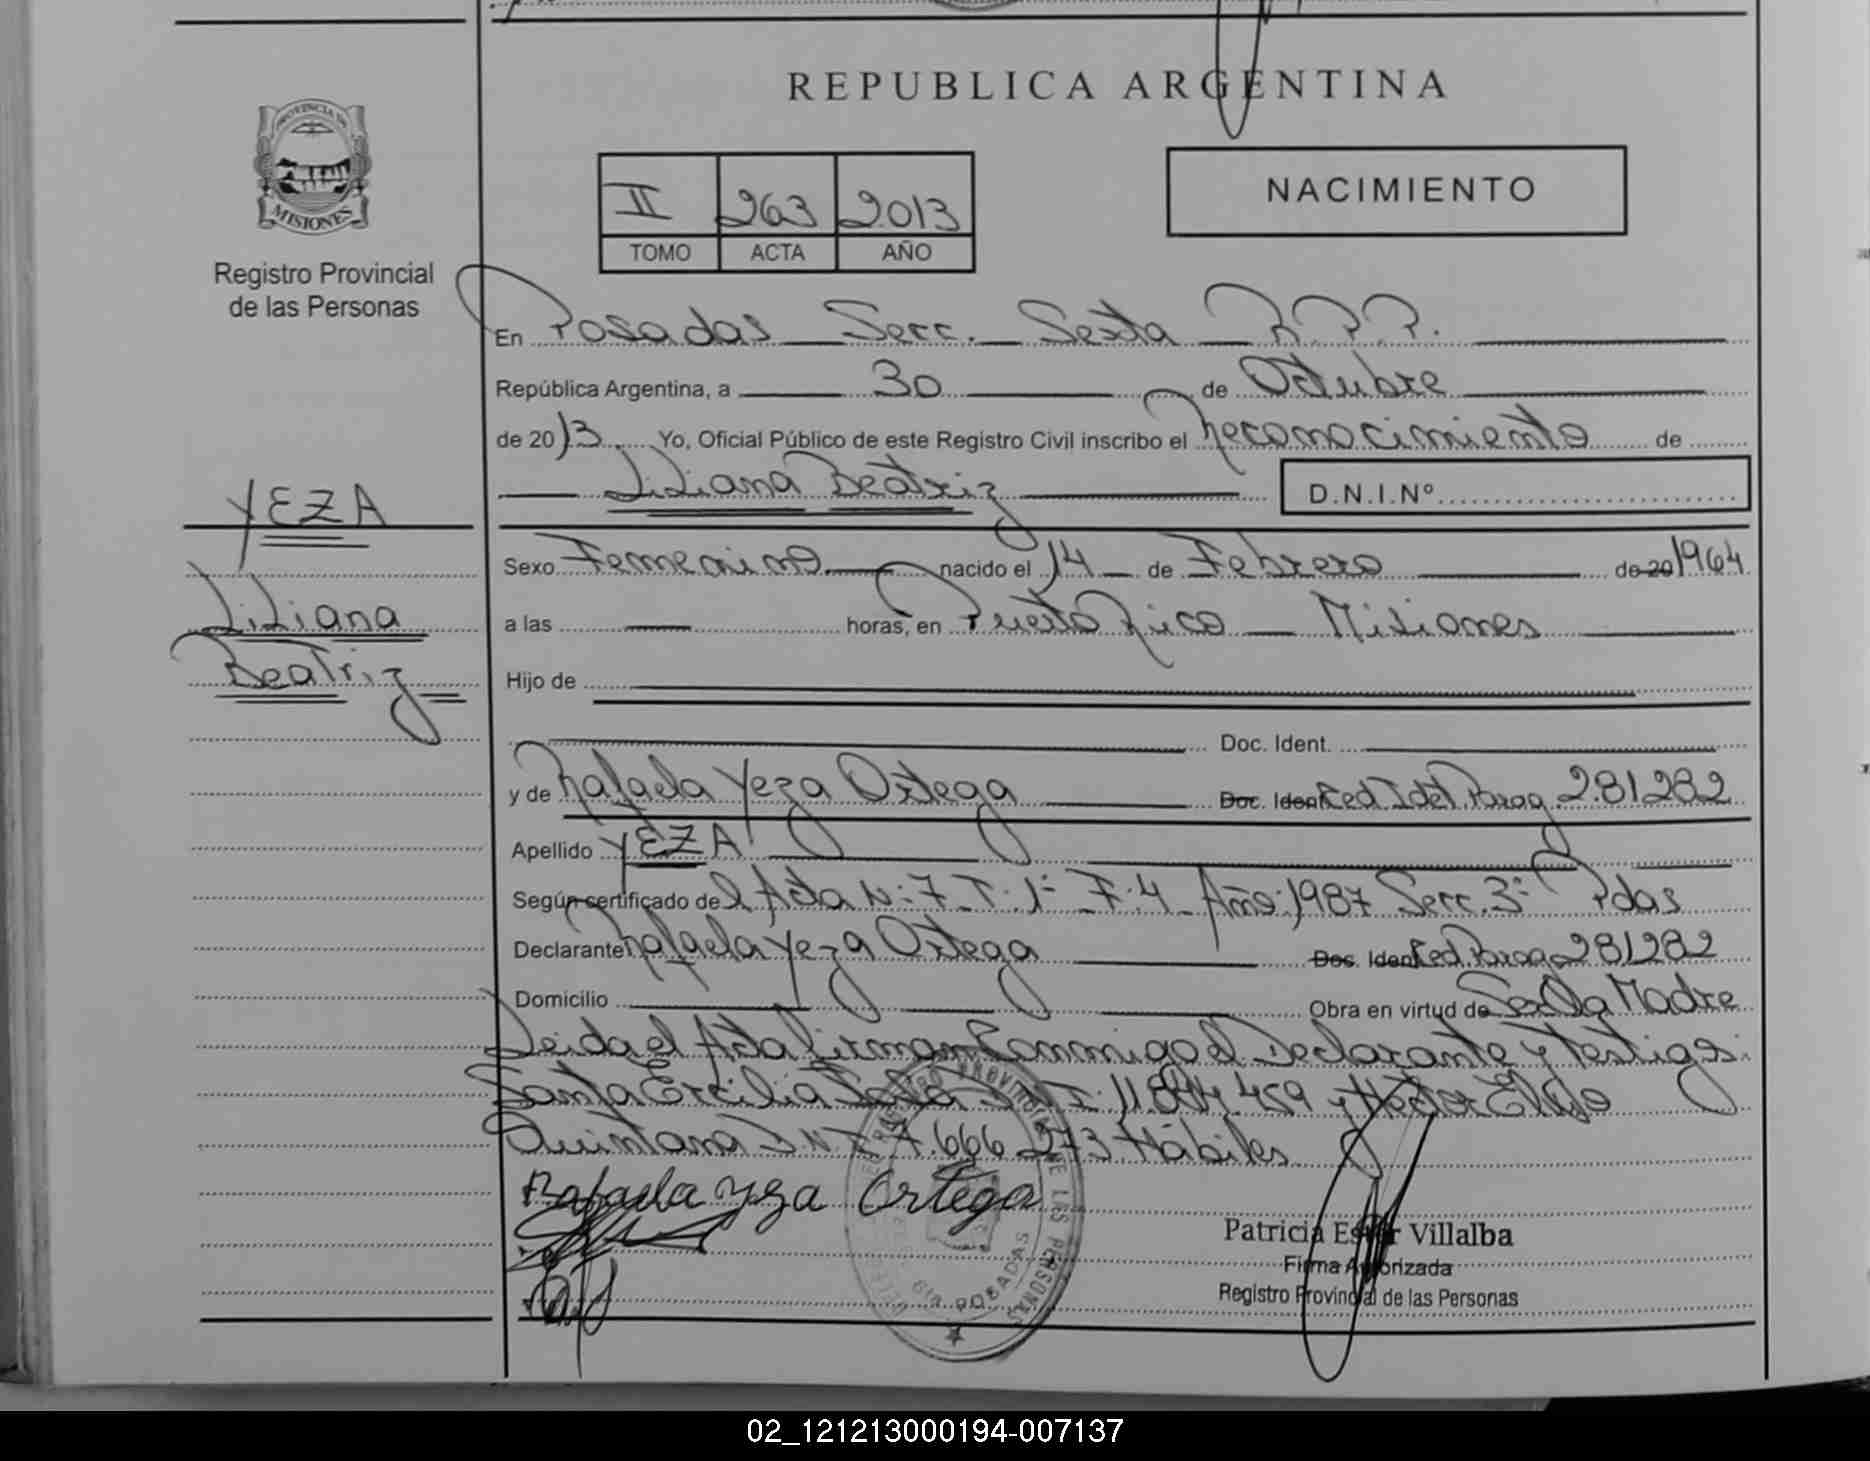 REPUBLICA ARGENTINA
PROVINCIA DE
MISIONES
Registro Provincial
de las Personas
II 263 2013
TOMO ACTA AÑO
NACIMIENTO
En Posadas Secc. Sexta R.P.P.
República Argentina, a 30 de Octubre
de 2013 Yo, Oficial Público de este Registro Civil inscribo el Reconocimiento de
Liliana Beatriz D.N.I.Nº
YEZA
Liliana
Beatriz
Sexo Femenino nacido el 14 de Febrero de 20 1964
a las horas, en Puerto Rico Misiones
Hijo de
Doc. Ident.
y de Rafaela Yeza Ortega Doc. Ident Ced Idet Parag. 281282
Apellido YEZA
Según certificado del Acta N: 7 T: 1º F: 4 Año: 1987 Secc. 3º Pdas
Declarante Rafaela Yeza Ortega Doc. Ident Ced Parag 281282
Domicilio Obra en virtud de Ser la Madre
Leida el Acta firman Conmigo el Declarante y testigos:
Santa Ercilia D.N.I. 11.844.429 y
Quintana D.N.I 7.666.273 Hábiles.
Rafaela Yeza Ortega
Patricia Ester Villalba
Firma Autorizada
Registro Provincial de las Personas
02_121213000194-007137